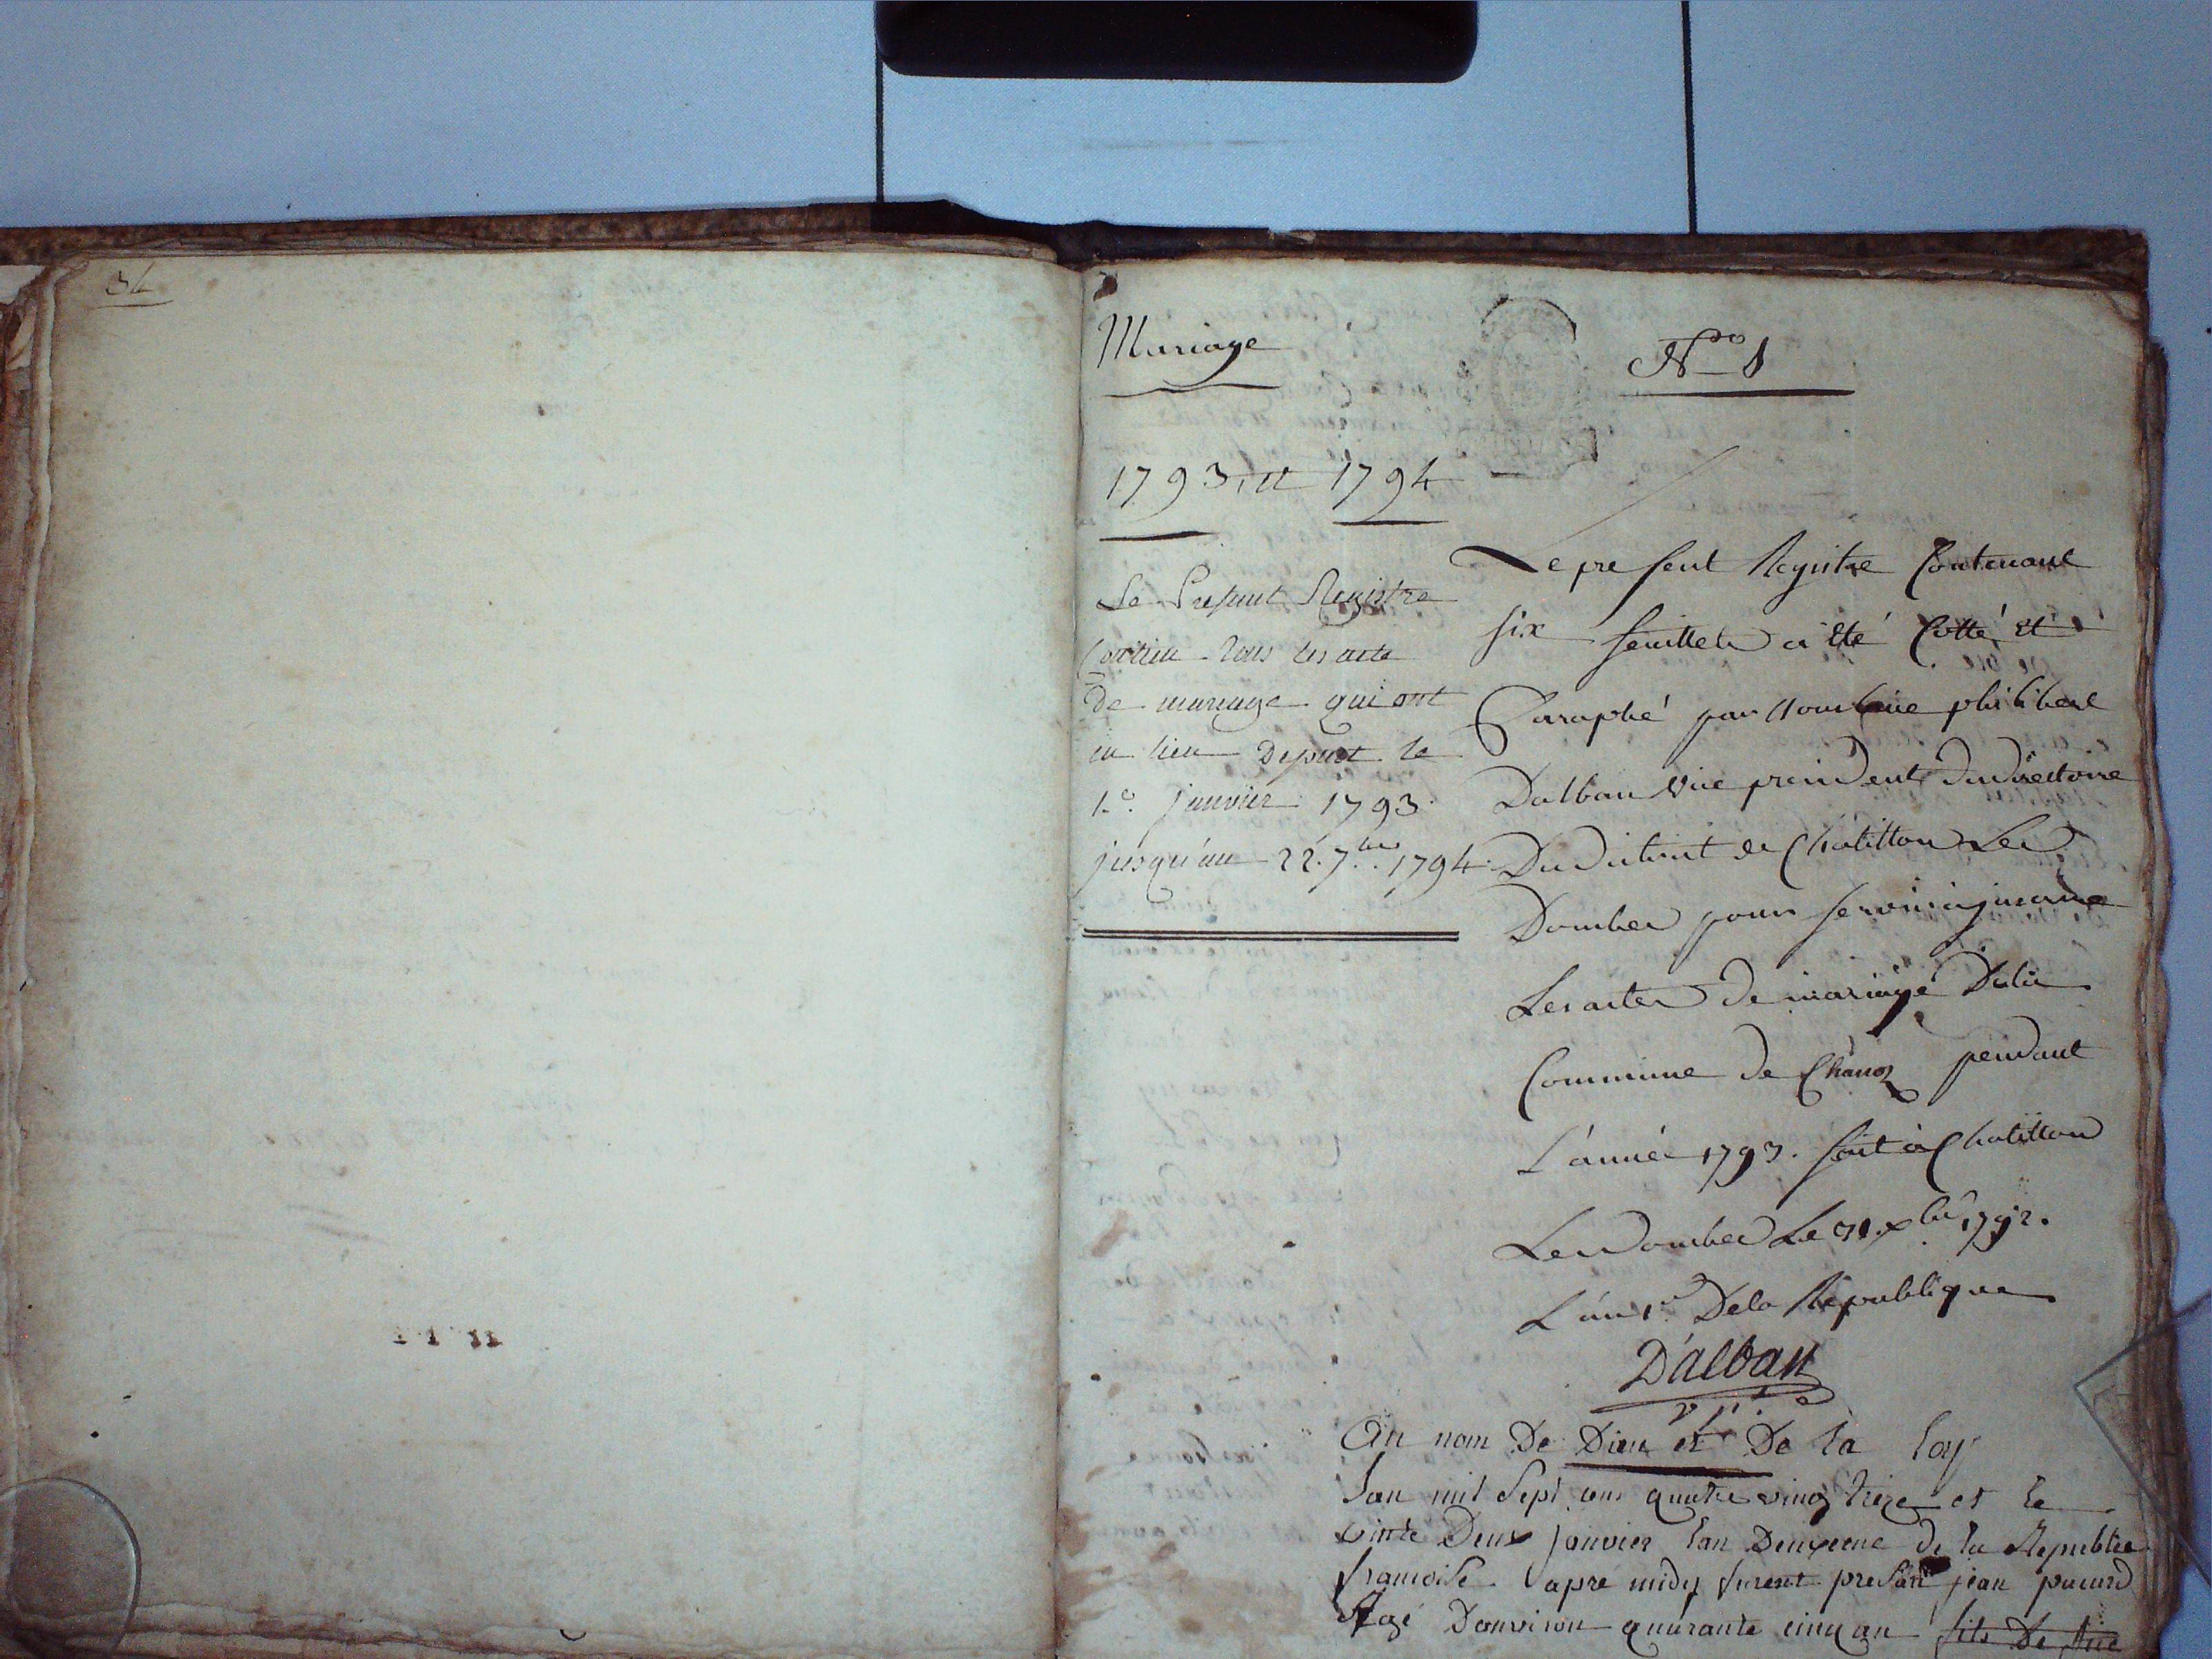 34
Mariage
N°
1793, et 1794
Le Present Registre
Contien tous les acte
de mariage qui ont
eu lieu Depuit le
1.er janvier 1793.
jusqu'au 22. 7bre 1794.
Le present Registre Contenant
six feuillets a été Cotté et
Paraphé par nous philibert
Dalban vice president du directoire
Du district de Chatillon Les
Dombes pour servir a
Les actes de mariage De la
Commune de Chanoz pendant
L'année 1793. fait à Chatillon
Les Dombes Le 31. xbre 1792.
L'an 1er De la Republique
D'alban
v p.t
Au nom De Dieu et De la loy
Lan mil Sept cens quatre vingt treze et le
vinte Deux janvier lan Deuxieme de la Republice
francoise apre midy furent presant jean
Agé Donviron quarante cinq an fils De feu